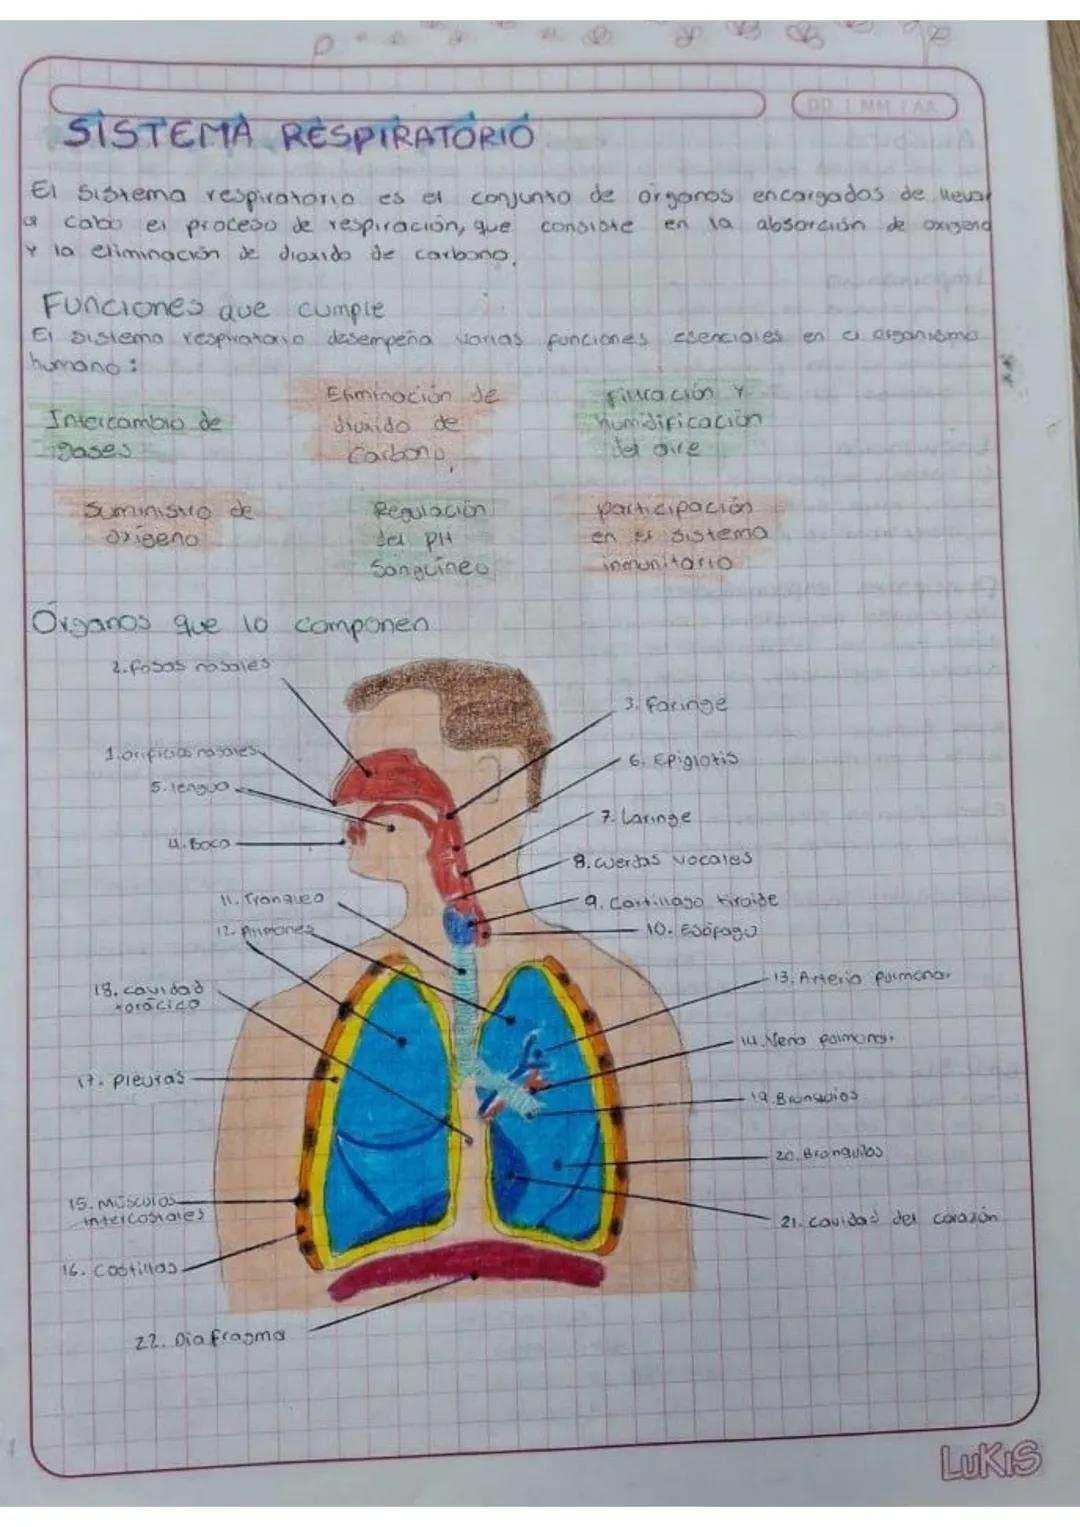 DD / MM / AA
SISTEMA RESPIRATORIO
El sistema respiratorio es el conjunto de órganos encargados de llevar
a cabo el proceso de respiración, que consiste en la absorción de oxigeno
y la eliminación de dioxido de carbono.
Funciones que cumple
El sistema respiratorio desempeña varias funciones esenciales en el organismo
humano:
Intercambio de
gases
Eliminación de
dioxido de
Carbono,
Filtración y
humidificación
del aire
Suministro de
oxígeno
Regulación
del PH
Sanguíneo
participación
en el sistema
inmunitario
Órganos que lo componen
2. fosas nasales
3. Faringe
1. orificios nasales
6. Epiglotis
5. lengua
7. Laringe
4. Boca
8. Cuerdas vocales
11. Traquea
9. Cartilago tiroide
12. Pulmones
10. Esófago
13. Arteria pulmonar
18. cavidad
torácico
14. Vena pulmonar
17. pleuras
19. Bronquios
20. Bronquilos
15. Músculos
intercostales
21. cavidad del corazón
16. Costillas
22. Diafragma
LuKiS